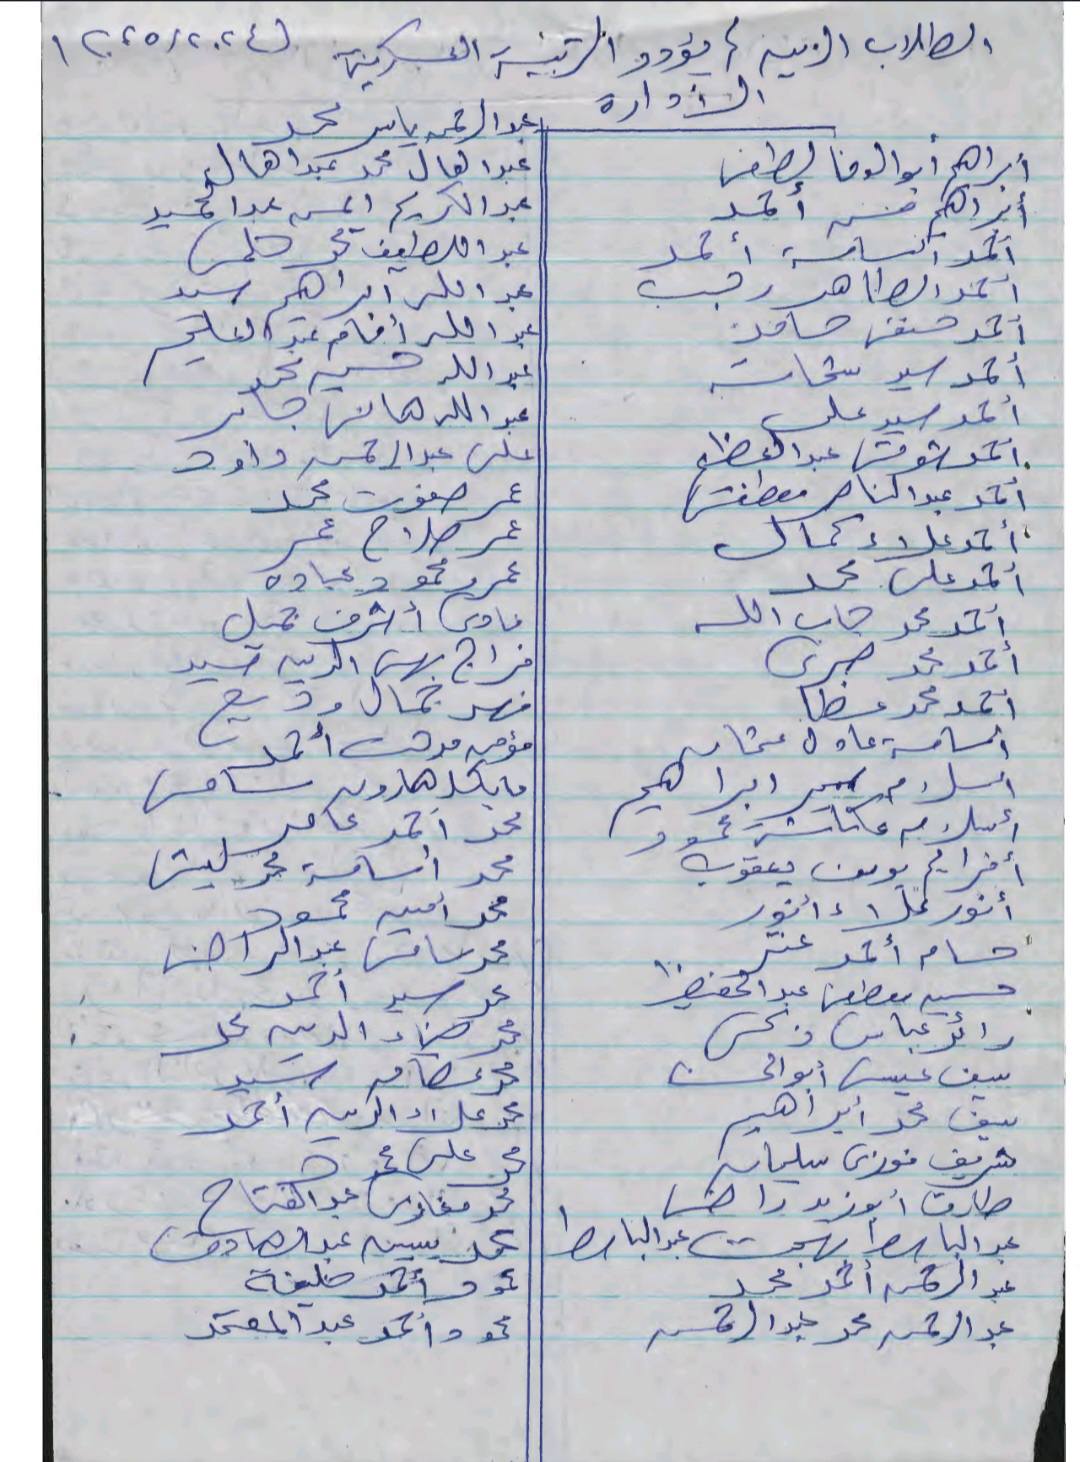 الطلاب الذين لم يؤدوا التربية العسكرية ٢٠٢٥/٢٠٢٤
الإدارة
أبراهيم أبو الوفا لطفى
أبراهيم حسن أحمد
أحمد أسامة أحمد
أحمد الطاهر رجب
أحمد حنفى
أحمد سيد شحاتة
أحمد سيد على
أحمد شوقى عبدالعظيم
أحمد عبدالناصر مصطفى
أحمد علاء كمال
أحمد على محمد
أحمد محمد جاب الله
أحمد محمد صبرى
أحمد محمد عطا
أسامة عادل عثمان
أسلام سمير ابراهيم
أسلام عكاشة محمود
أفرايم يعقوب
أنور علاء أنور
حسام أحمد عنتر
حسين مصطفى عبدالحفيظ
رائد عباس زكى
سيف عيسى أبوالحسن
سيف محمد أبراهيم
شريف فوزى سليمان
طارق أبوزيد راضى
عبدالباسط بهجت عبدالباسط
عبدالرحمن أحمد محمد
عبدالرحمن محمد عبدالرحمن
عبدالرحمن ياسر محمد
عبدالعال محمد عبدالعال
عبدالكريم ايمن عبدالحميد
عبداللطيف محمد حلمى
عبدالله ابراهيم سيد
عبدالله عبدالعليم
عبدالله حسين محمد
عبدالله هانى جابر
على عبدالرحمن داود
عمر صفوت محمد
عمر صلاح عمر
عمرو محمود عباده
فادى أشرف جميل
فراج بهى الدين سيد
فهد جمال وديع
مؤمن مدحت أحمد
مايكل هارون سامى
محمد أحمد عامر
محمد أسامة محمد ليثى
محمد أمين محمود
محمد سامى عبدالراضى
محمد سيد أحمد
محمد ضياء الدين محمد
محمد عصام سيد
محمد علاء الدين أحمد
محمد على محمد
محمد مغازى عبدالفتاح
محمد يسين عبدالصادق
محمود أحمد خليفة
محمود أحمد عبدالمعتمد